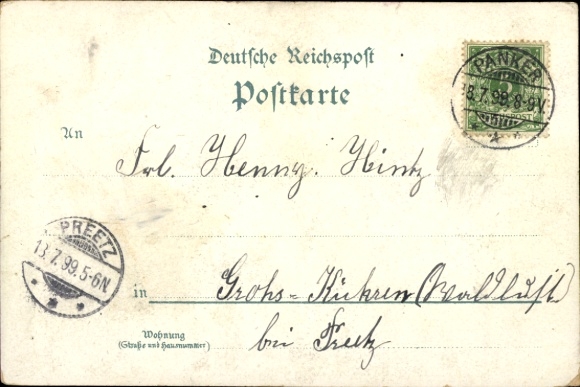 Deutsche Reichspost
Postkarte
PANKER
13.7.99.8-9V.
An
Frl. Henny Hintz
PREETZ
13.7.99.5-6N
in Grohs-Kükren (Waldlust)
Wohnung
(Straße und Hausnummer)
bei Preetz